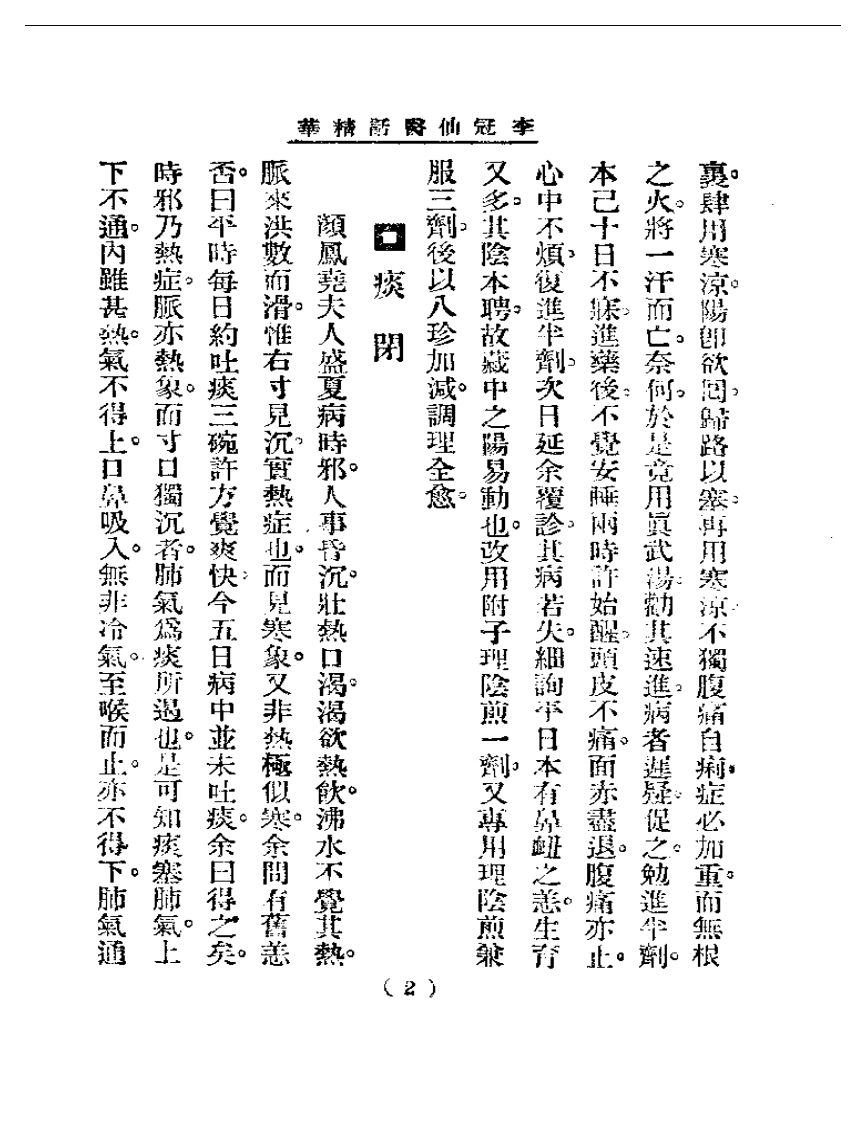 李冠仙醫話精華
裏。肆用寒涼。陽卽欲回。歸路以塞。再用寒涼。不獨腹痛自痢。症必加重。而無根
之火。將一汗而亡。奈何。於是竟用眞武湯。勸其速進。病者遲疑。促之。勉進半劑。
本已十日不寐。進藥後。不覺安睡兩時許始醒。頭皮不痛。面赤盡退。腹痛亦止。
心中不煩。復進半劑。次日延余覆診。其病若失。細詢平日本有鼻衄之恙。生育
又多。其陰本聘。故藏中之陽易動也。改用附子理陰煎一劑。又專用理陰煎兼
服三劑。後以八珍加減。調理全愈。
痰閉
顔鳳堯夫人盛夏病時邪。人事昏沉。壯熱口渴。渴欲熱飲。沸水不覺其熱。
脈來洪數而滑。惟右寸見沉。實熱症也。而見寒象。又非熱極似寒。余問有舊恙
否。曰平時每日約吐痰三碗許方覺爽快。今五日病中並未吐痰。余曰得之矣。
時邪乃熱症。脈亦熱象。而寸口獨沉者。肺氣爲痰所遏也。是可知痰塞肺氣。上
下不通。內雖甚熱。氣不得上。口鼻吸入。無非冷氣。至喉而止。亦不得下。肺氣通
(2)